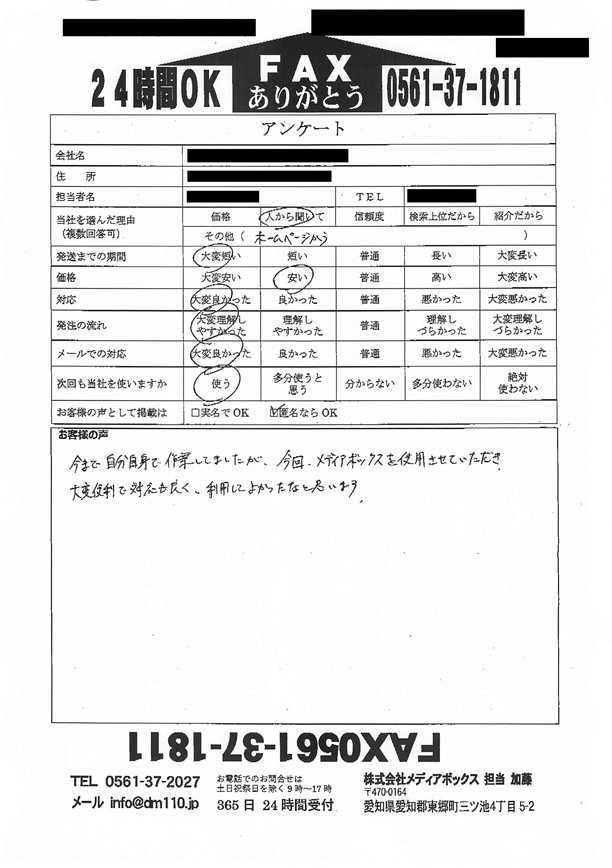 24時間OK
FAX
ありがとう
0561-37-1811
アンケート
会社名
住 所
担当者名 TEL
当社を選んだ理由(複数回答可) 価格 人から聞いて 信頼度 検索上位だから 紹介だから
その他( ホームページから )
発送までの期間 大変短い 短い 普通 長い 大変長い
価格 大変安い 安い 普通 高い 大変高い
対応 大変良かった 良かった 普通 悪かった 大変悪かった
発注の流れ 大変理解しやすかった 理解しやすかった 普通 理解しづらかった 大変理解しづらかった
メールでの対応 大変良かった 良かった 普通 悪かった 大変悪かった
次回も当社を使いますか 使う 多分使うと思う 分からない 多分使わない 絶対使わない
お客様の声として掲載は □実名でOK ☑匿名ならOK
お客様の声
今まで自分自身で作業してましたが、今回、メディアボックスを使用させていただき
大変便利で対応も良く、利用してよかったなと思います。
FAX0561-37-1811
TEL 0561-37-2027
メール info@dm110.jp
お電話でのお問合せは
土日祝祭日を除く9時〜17時
365日24時間受付
株式会社メディアボックス 担当 加藤
〒470-0164
愛知県愛知郡東郷町三ツ池4丁目5-2